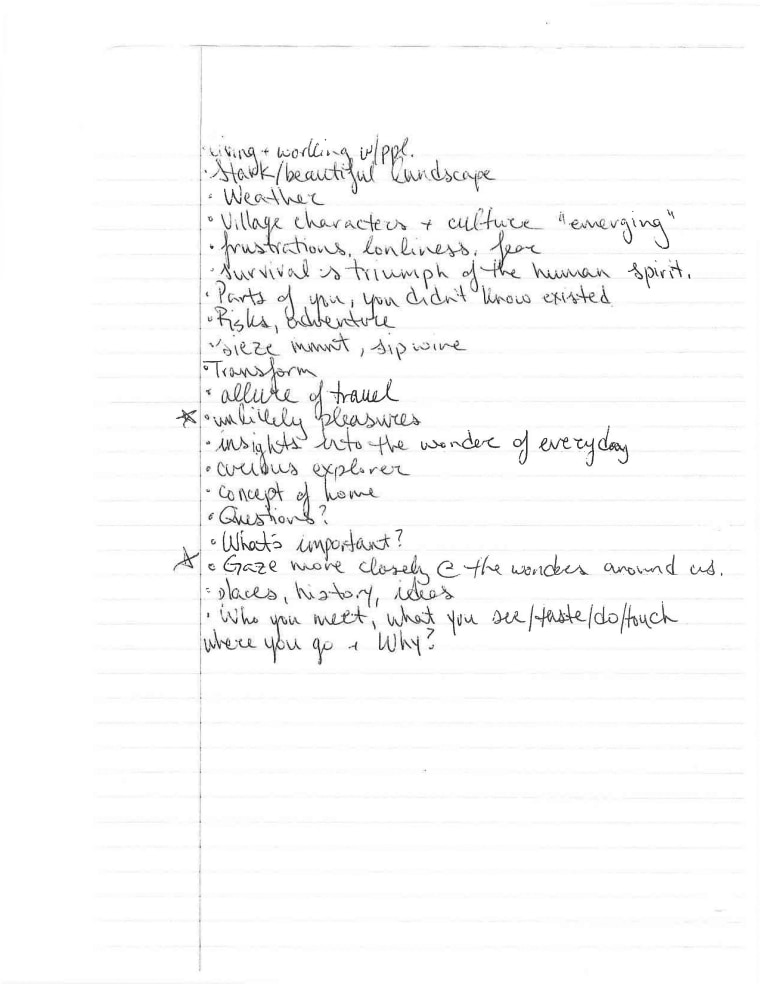 · Living + working w/ppl.
· Stark/beautiful landscape
· Weather
· Village characters + culture "emerging"
· frustrations, lonliness, fear
· Survival is triumph of the human spirit.
· Parts of you, you didn't know existed
· Risks, adventure
· sieze mmnt, sip wine
· Transform
· allure of travel
☆ · unlikely pleasures
· insights into the wonder of everyday
· curious explorer
· concept of home
· Questions?
· What's important?
☆ · Gaze more closely @ the wonders around us.
· places, history, ideas
· Who you meet, what you see/taste/do/touch
where you go + Why?